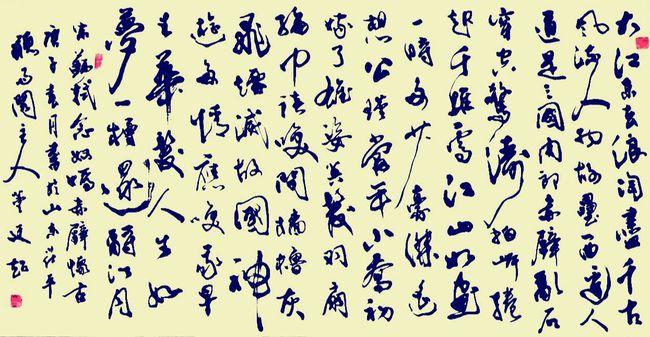 大江東去浪淘盡千古
風流人物故壘西邊人
道是三國周郎赤壁亂石
穿空驚濤拍岸捲
起千堆雪江山如畫
一時多少豪傑遙
想公瑾當年小喬初
嫁了雄姿英發羽扇
綸巾談笑間檣櫓灰
飛煙滅故國神
遊多情應笑我早
生華髮人生如
夢一樽還酹江月
宋蘇軾念奴嬌赤壁懷古
庚子春月書於山東茌平
主人